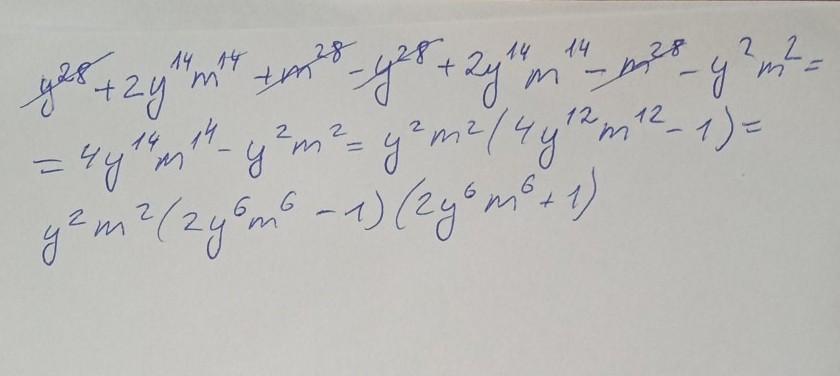 y²⁸ + 2y¹⁴m¹⁴ + m²⁸ - y²⁸ + 2y¹⁴m¹⁴ - m²⁸ - y²m² =
= 4y¹⁴m¹⁴ - y²m² = y²m²(4y¹²m¹² - 1) =
y²m²(2y⁶m⁶ - 1)(2y⁶m⁶ + 1)